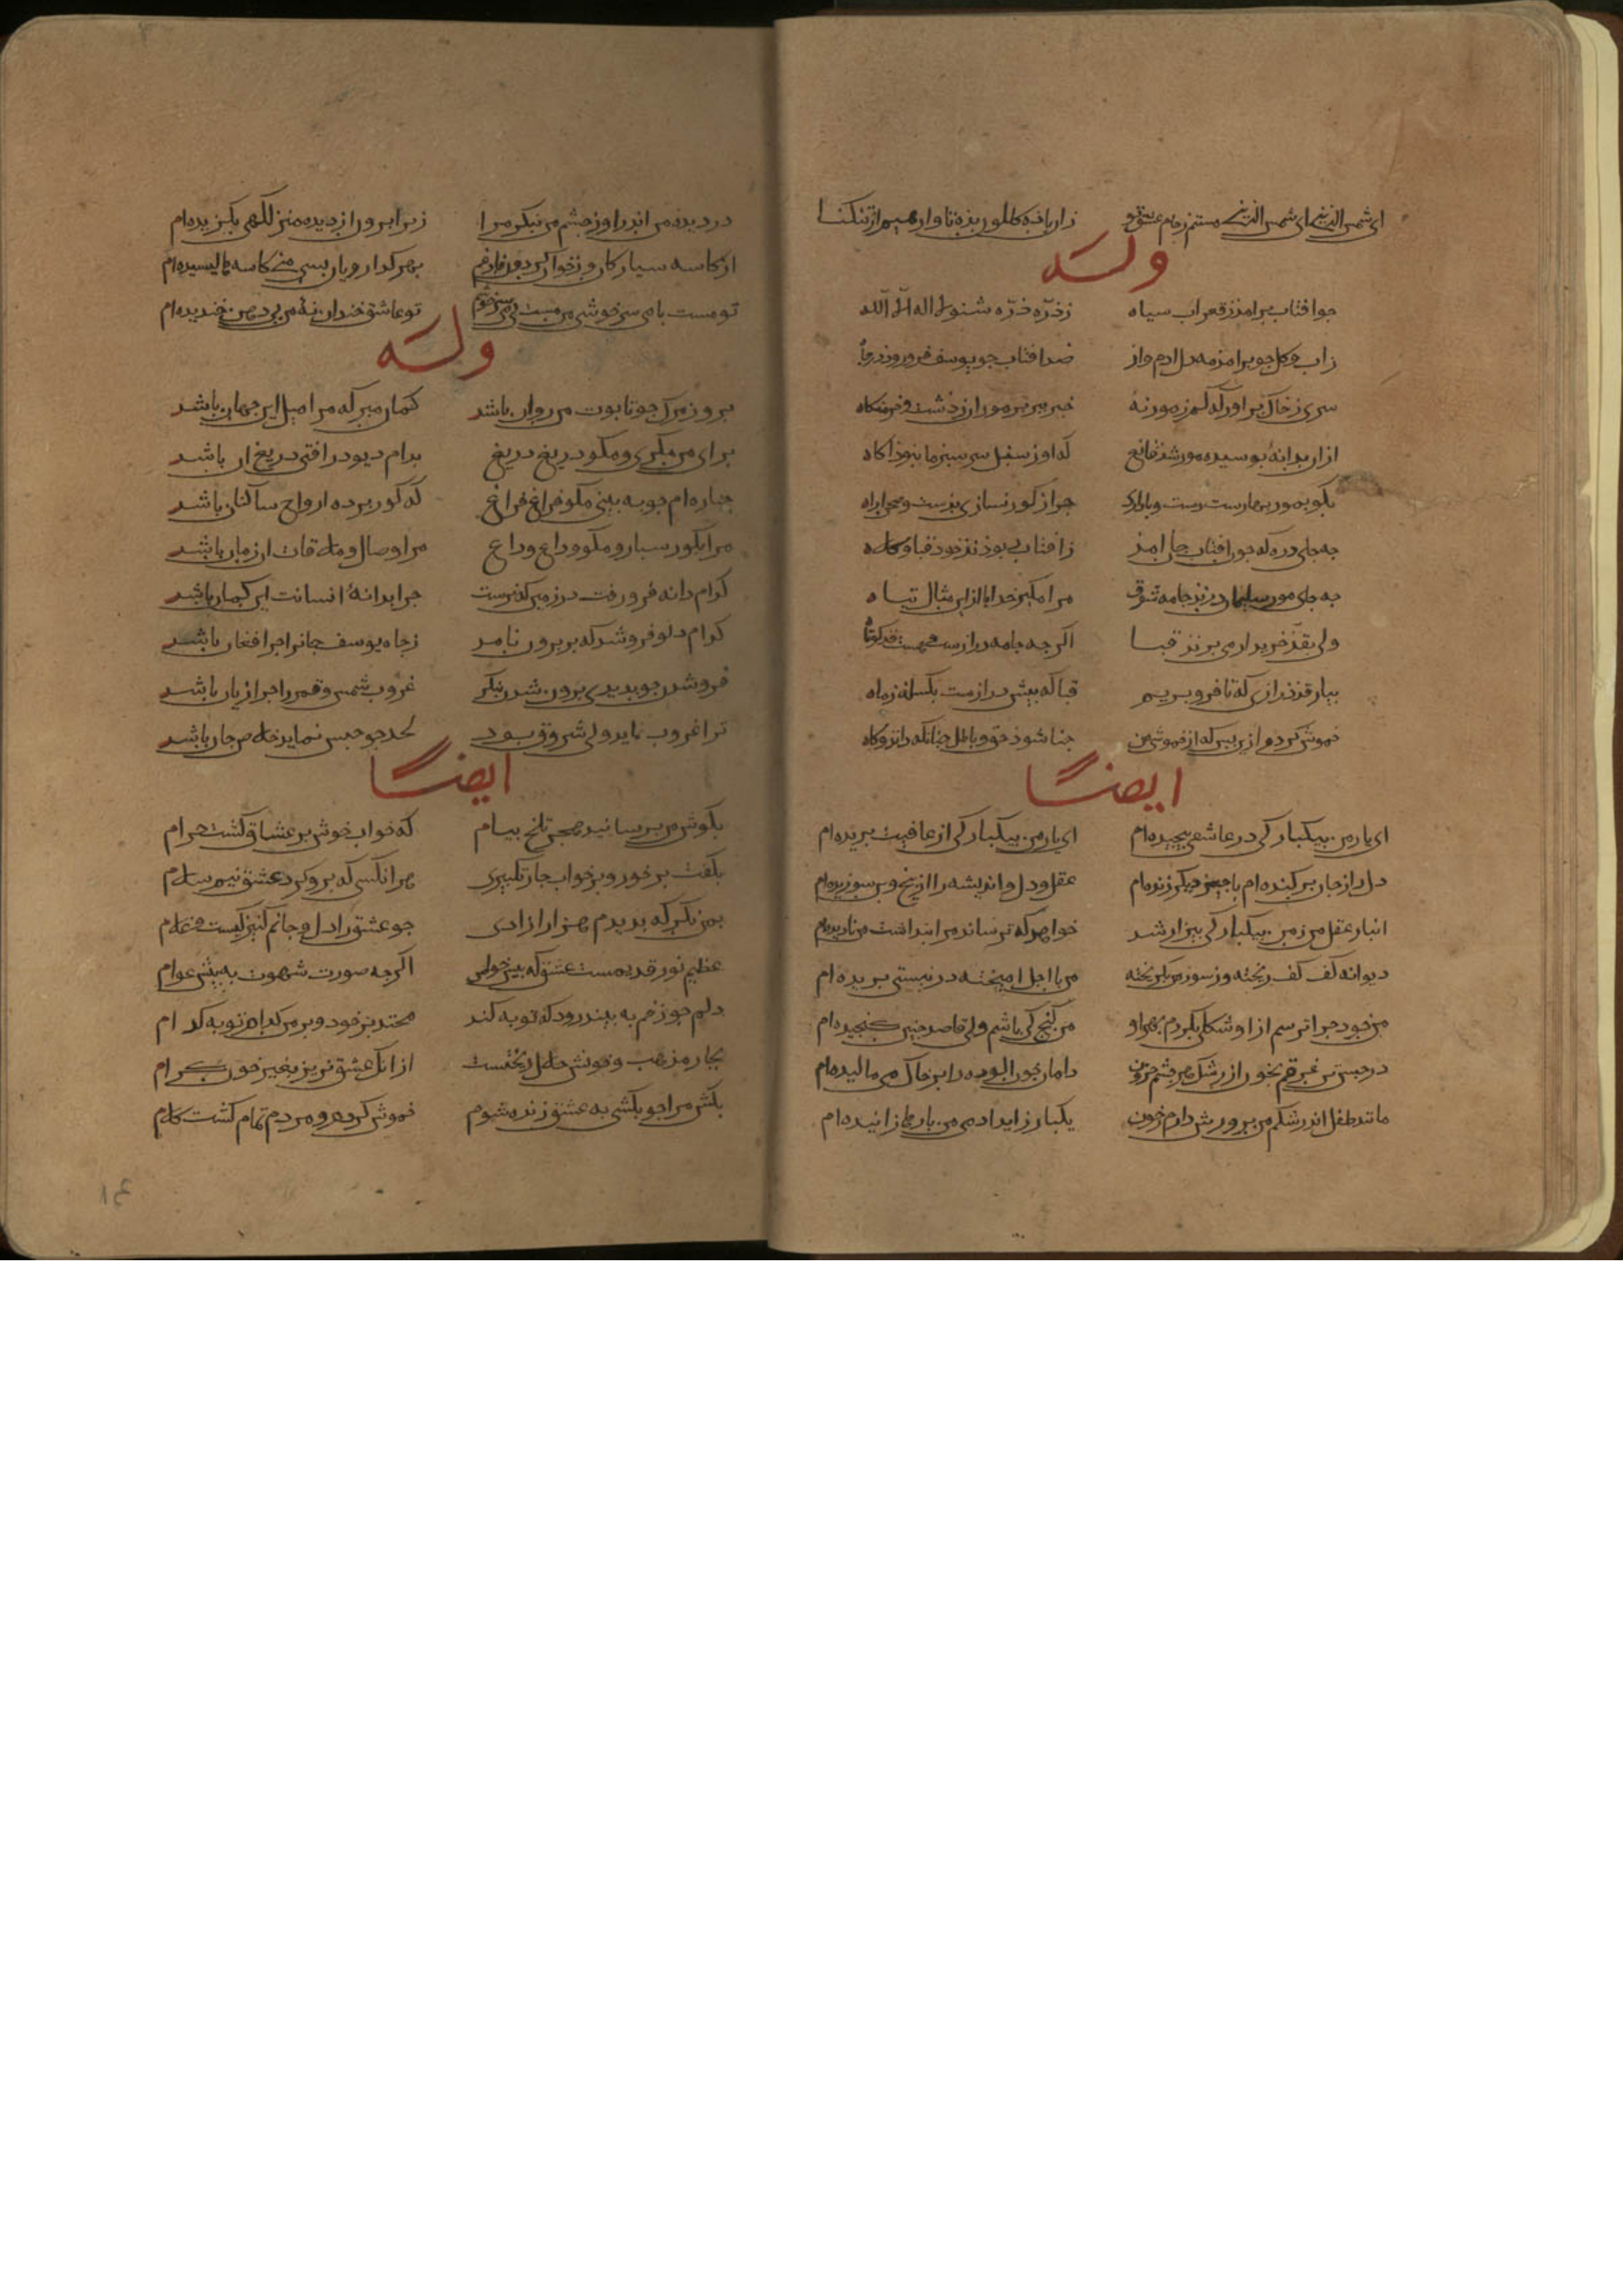 ای شمس الدین ای شمس الدین مستم ز جام عشق تو زان باده کاطور بذه تا وارهیم از تنکنا
وله
جو افتاب برامذ ز قعر اب سیاه ز ذره ذره شنو لا اله الا الله
ز اب و کل جو برامذ مه دل ادم وار صد افتاب جو یوسف فرو روذ در جاه
سری ز خاک براور که کم ز مور نهٔ خبر ببر بر موران ز دشت و خرمنکاه
ازان بدانهٔ بوسیده مور شذ قانع که او ز سنبل سرسبز ما نبوذ اکاه
بکو بمور بهارست و دست و با داری جرا ز کور نسازی بذشت و صحرا راه
جه جای ذره که جون افتاب جان امذ ز افتاب ربوذند خوذ قبا و کلاه
جه جای مور سلیمان درید جامه شوق مرا مکیر خدایا ازین مثال تباه
ولی بقد خریدار می برند قبا اکرجه جامه درازست هست قد کوتاه
بیار قد درازی که تا فرو بریم قبا که بیش درازیست بکسلد زه ماه
خموش کردم ازین بس که از خموشی من جدا شوذ حق و باطل جنانکه دانه و کاه
ایضا
ای یار من بیکبارکی در عاشقی بیجیده‌ام ای یار من بیکبارکی از عافیت ببریده‌ام
دل را ز جان برکنده‌ام با جیز دیکر زنده‌ام عقل و دل و اندیشه را از بیخ و بن سوزیده‌ام
انبار عقل من ز من بیکبارکی بیزار شد خواهد که ترساند مرا بنداشت من نادیده‌ام
دیوانه کف کف ریخته وز سوز من بکریخته من با اجل امیخته در نیستی بریده‌ام
من خود جرا ترسم ازو شکلی بکردم بهر او من کنج کی باشم ولی قاصد جنین کنجیده‌ام
در حبس تن غرقم بخون از رشک هر جشم حرون دامان خون الوده را بر خاک می مالیده‌ام
مانند طفل اندر شکم من برورش دارم ز خون یکبار زاید ادمی من بارها زاییده‌ام
در دیده من اندرا وز جشم من بنکر مرا زیرا برون از دیده منزلکهی بکزیده‌ام
از کاسه سیارکان وز خوان کردون فارغم بهر کدا رویان بسی من کاسه‌ها لیسیده‌ام
تو مست با می سرخوشی من مست بی می سرخوشم تو عاشق خندان نهٔ من بی دهن خندیده‌ام
وله
بروز مرک جو تابوت من روان باشد کمان مبر که مرا میل این جهان باشد
برای من مکری و مکو دریغ دریغ بدام دیو در افتی دریغ ان باشد
جنازه‌ام جو به بینی مکو فراغ فراغ که کور برده ارواح ساکنان باشد
مرا بکور سبار و مکو وداع وداع مرا وصال و ملاقات ان زمان باشد
کدام دانه فرو رفت در زمین که نرست جرا بدانهٔ انسانت این کمان باشد
کدام دلو فرو شد که بر برون نامد ز جاه یوسف جانرا جرا فغان باشد
فرو شدن جو بدیدی برون شدن بنکر غروب شمس و قمر را جرا زیان باشد
ترا غروب نماید ولی شروق بود لحد جو حبس نماید خلاص جان باشد
ایضا
بکوش من برسانید هجر تلخ بیام که خواب خوش بر عشاق کشت حرام
بکفت بر خور و بر خواب جار تکبیری هر انکسی که برو کرد عشق نیم سلام
بمن نکر که بدیدم هزار ازادی جو عشق را دل و جانم کنیزکیست و غلام
عظیم نور قدیمست عشق که بیش خواص اکرجه صورت شهوت به بیش عوام
دلم جو زخم به بیند رود که توبه کند مخندبر خود و بر من کدام توبه کدام
بجار مذهب و خونش حلال ریختست ازانک عشق نریزد بغیر خون کرام
بکش مرا جو بکشی به عشق زنده شوم خموش کردم و مردم تمام کشت کلام
۱۴